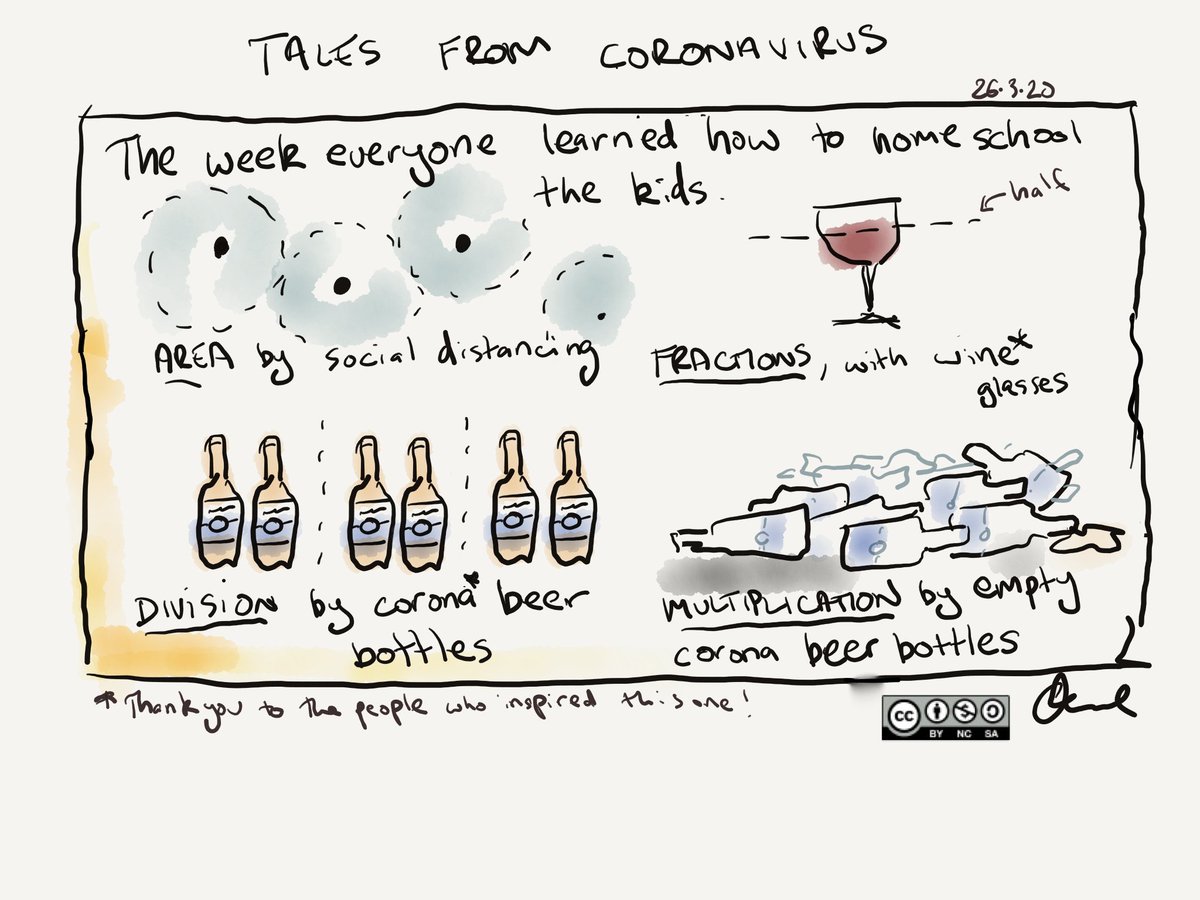 TALES FROM CORONAVIRUS
26.3.20
The week everyone learned how to home school
the kids.
half
AREA by social distancing
FRACTIONS, with wine*
glasses
DIVISION by corona* beer
bottles
MULTIPLICATION by empty
corona beer bottles
* Thank you to the people who inspired this one!
cc
BY NC SA